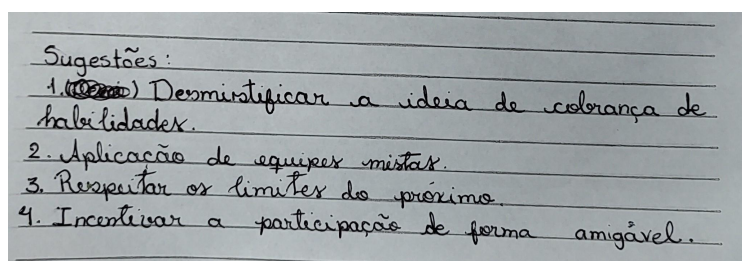 Sugestões:
1. Desmistificar a ideia de cobrança de
habilidades.
2. Aplicação de equipes mistas.
3. Respeitar os limites do próximo.
4. Incentivar a participação de forma amigável.